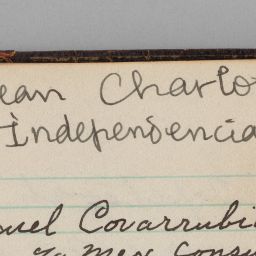 ean Charlo
Independencia
uel Covarrubi
Mex Consu